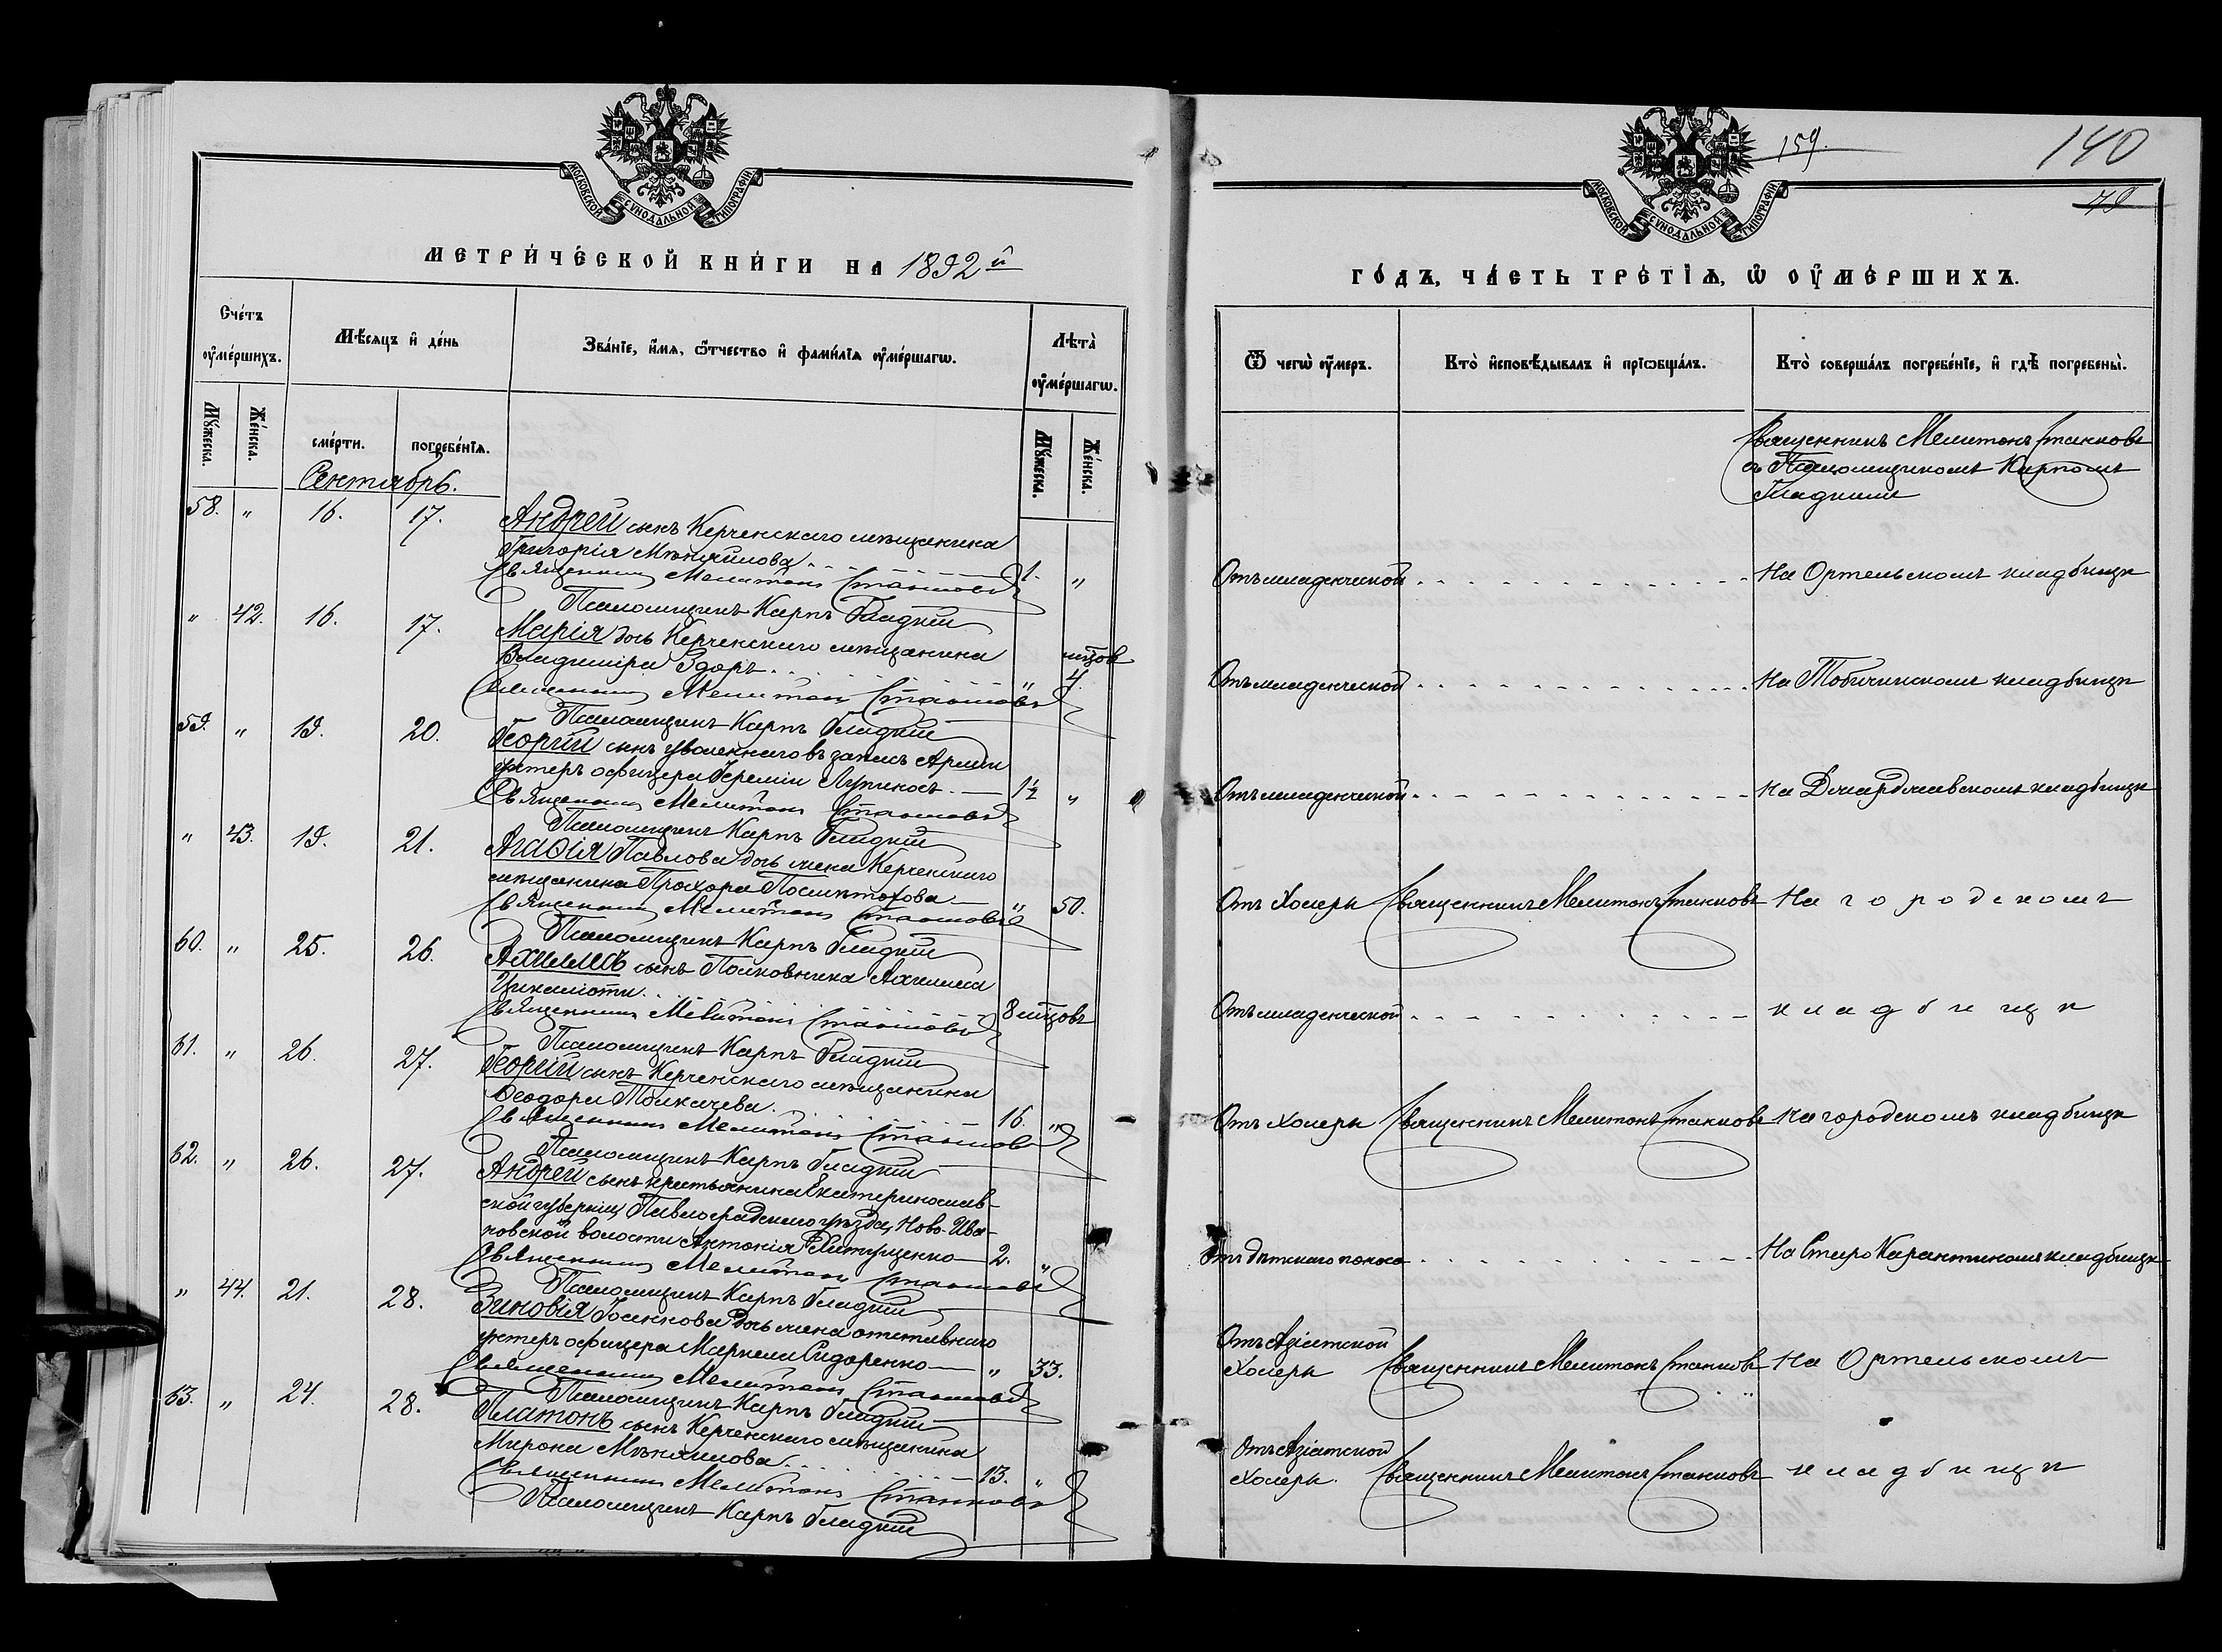 МОСКОВСКОЙ СѴНОДАЛЬНОЙ ТИПОГРАФІИ
МЕТРИЧЕСКОЙ КНИГИ НА 1892й
Счетъ оумершихъ.
Мѣсяцъ и день
Званіе, имя, отчество и фамилія оумершагѡ.
Лѣта оумершагѡ.
Мꙋжеска.
Женска.
смерти.
погребенія.
Мꙋжеска.
Женска.
Сентябрь.
58. " 16. 17. Андрей сынъ Керченскаго мѣщанина
Григорія Мѣняйлова 1. "
Священникъ Мелитонъ Станковъ
Псаломщикъ Карпъ Гладкій
" 42. 16. 17. Марія дочь Керченскаго мѣщанина
Владиміра " мцовъ 4.
Священникъ Мелитонъ Станковъ
Псаломщикъ Карпъ Гладкій
59. " 19. 20. Георгій сынъ уволеннаго въ запасъ Арміи
унтеръ офицера Іереміи 1½ "
Священникъ Мелитонъ Станковъ
Псаломщикъ Карпъ Гладкій
" 43. 19. 21. Агаѳія Павлова дочь жена Керченскаго
мѣщанина Прохора " 50.
Священникъ Мелитонъ Станковъ
Псаломщикъ Карпъ Гладкій
60. " 25. 26. Ахиллесъ сынъ Полковника Ахиллеса
8 мцовъ
Священникъ Мелитонъ Станковъ
Псаломщикъ Карпъ Гладкій
61. " 26. 27. Георгій сынъ Керченскаго мѣщанина
Ѳеодора Толкачева. 16. "
Священникъ Мелитонъ Станковъ
Псаломщикъ Карпъ Гладкій
62. " 26. 27. Андрей сынъ крестьянина Екатеринослав-
ской губерніи, Павлоградскаго уѣзда, Ново-Ива-
новской волости Антонія 2. "
Священникъ Мелитонъ Станковъ
Псаломщикъ Карпъ Гладкій
" 44. 21. 28. Зиновія дочь жена отставнаго
унтеръ офицера Маркела Сидоренко " 33.
Священникъ Мелитонъ Станковъ
Псаломщикъ Карпъ Гладкій
63. " 24. 28. Платонъ сынъ Керченскаго мѣщанина
Мирона Мѣняйлова 13. "
Священникъ Мелитонъ Станковъ
Псаломщикъ Карпъ Гладкій
МОСКОВСКОЙ СѴНОДАЛЬНОЙ ТИПОГРАФІИ
159.
140
79
ГОДЪ, ЧАСТЬ ТРЕТІѦ, Ѡ ОУМЕРШИХЪ.
Ѿ чегѡ оумеръ.
Кто исповѣдывалъ и пріѡбщалъ.
Кто совершалъ погребеніе, и гдѣ погребены.
Священникъ Мелитонъ Станковъ
съ Псаломщикомъ Карпомъ
Гладкимъ
Отъ младенческой На Ортельскомъ кладбищѣ
Отъ младенческой На Тобичикскомъ кладбищѣ
Отъ младенческой На Джарджавскомъ кладбищѣ
Отъ холеры Священникъ Мелитонъ Станковъ На городскомъ
Отъ младенческой кладбищѣ
Отъ холеры Священникъ Мелитонъ Станковъ На городскомъ кладбищѣ
Отъ дѣтскаго поноса На Старо Карантиномъ кладбищѣ
Отъ Азіатской
холеры Священникъ Мелитонъ Станковъ На Ортельскомъ
Отъ Азіатской
холеры. Священникъ Мелитонъ Станковъ кладбищѣ